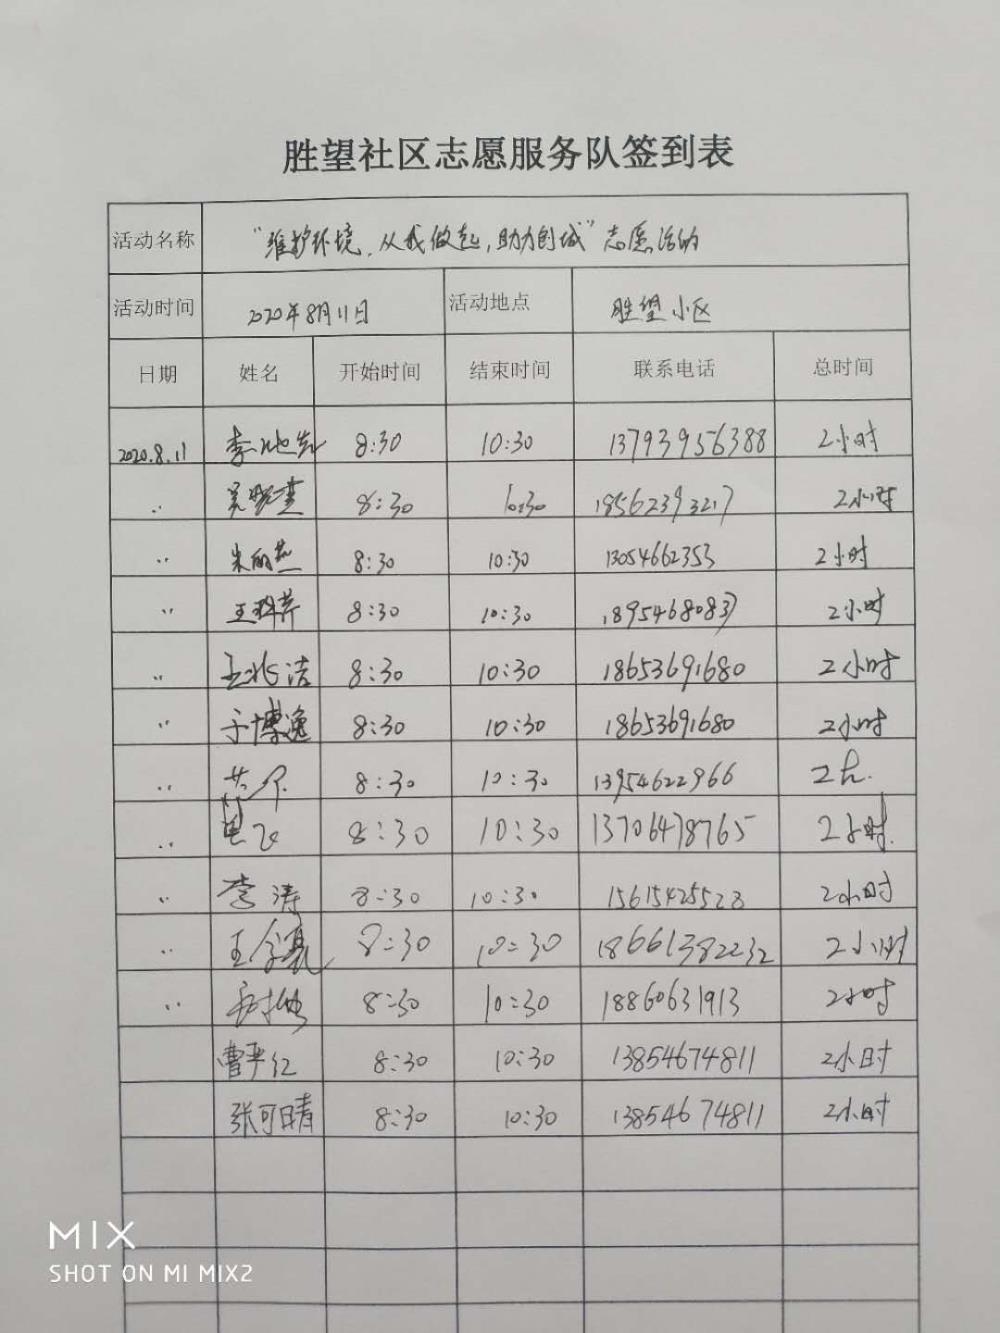 胜望社区志愿服务队签到表
活动名称 "维护环境,从我做起,助力创城"志愿活的
活动时间 2020年8月11日 活动地点 胜望小区
日期 姓名 开始时间 结束时间 联系电话 总时间
2020.8.11 李 8:30 10:30 13793956388 2小时
·· 8:30 10:30 18562393217 2小时
·· 朱丽燕 8:30 10:30 13054662353 2小时
·· 王 芹 8:30 10:30 18954680837 2小时
·· 王兆洁 8:30 10:30 18653691680 2小时
·· 于博逸 8:30 10:30 18653691680 2小时
·· 8:30 10:30 13954622966 2h.
·· 8:30 10:30 13706478765 2小时.
·· 李涛 8:30 10:30 15615425523 2小时
·· 王 8:30 10:30 18661382232 2小时
·· 8:30 10:30 18860631913 2小时
曹平红 8:30 10:30 13854674811 2小时
张可晴 8:30 10:30 13854674811 2小时
MIX
SHOT ON MI MIX2